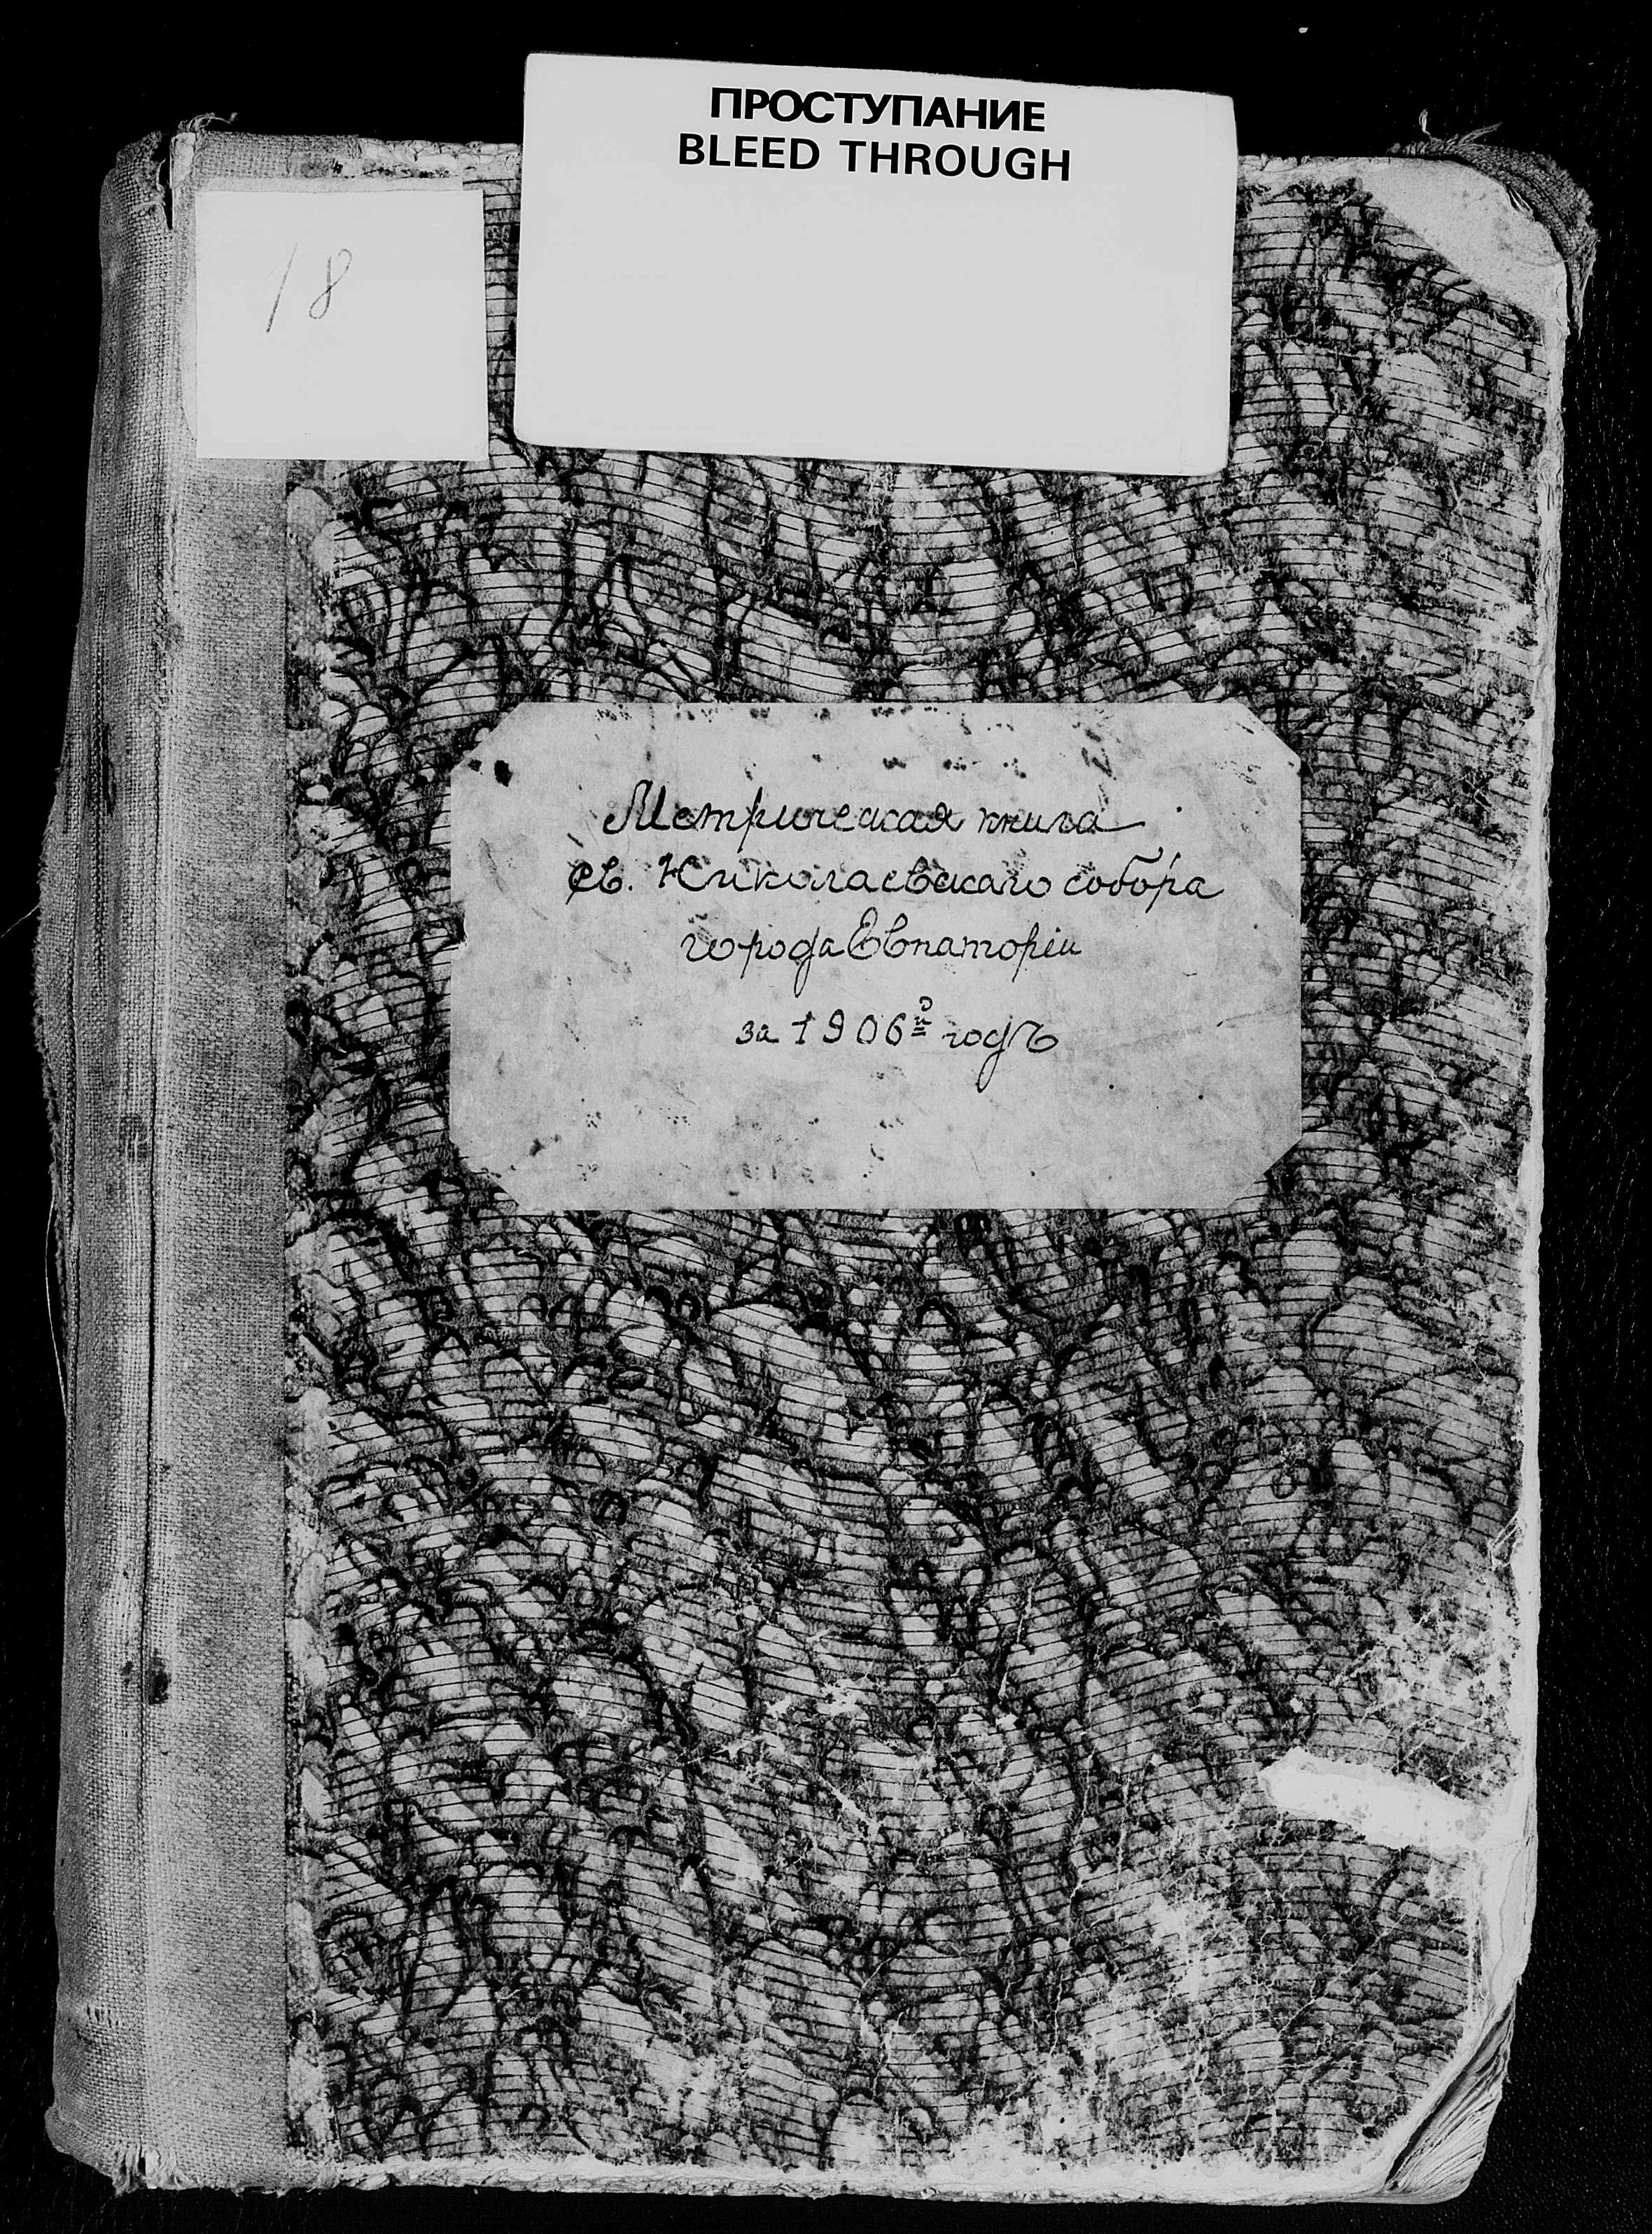 ПРОСТУПАНИЕ
BLEED THROUGH
18
Метрическая книга
св. Николаевскаго собора
города Евпаторіи
за 1906й годъ